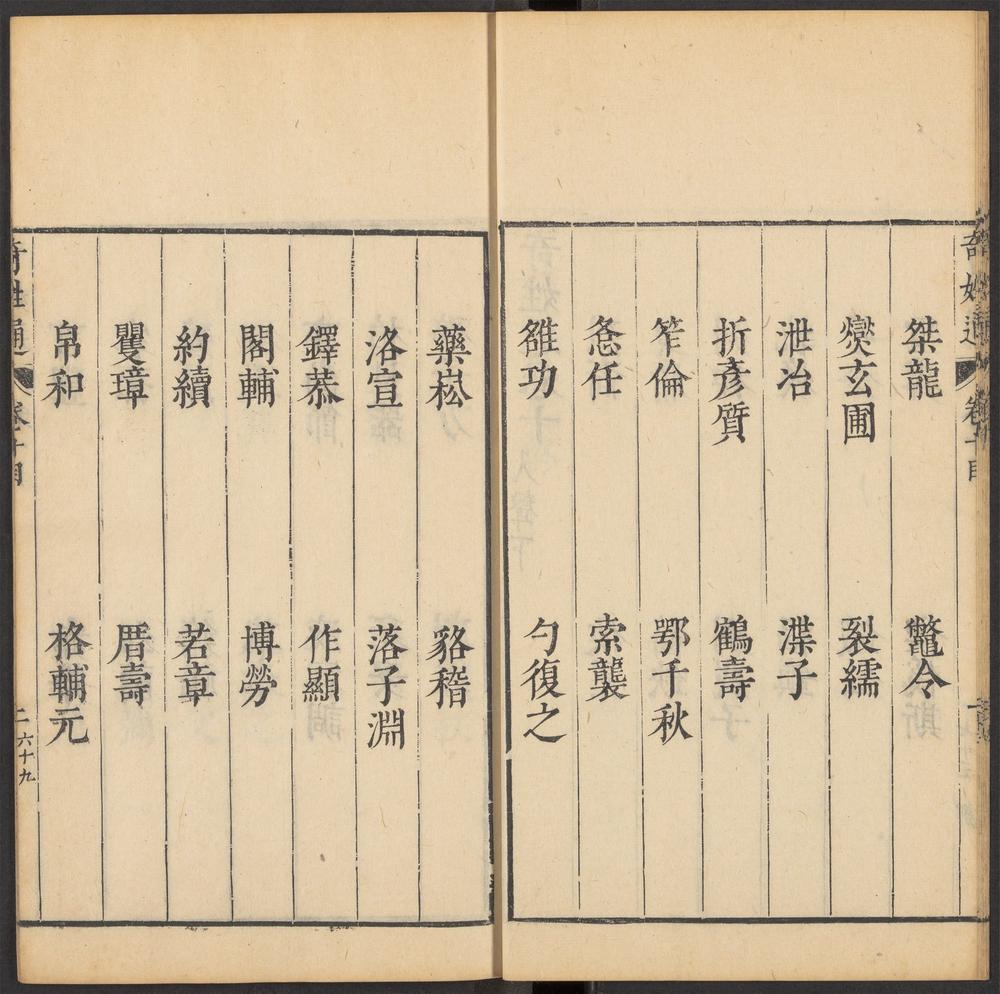 桀龍　鼈令
爕玄圃　裂繻
泄冶　渫子
折彥質　鶴壽
笮倫　鄂千秋
㤩任　索襲
雒功　勺復之
藥崧　貉稽
洛宣　落子淵
鐸恭　作顯
閣輔　博勞
約續　若章
矍璋　厝壽
帛和　格輔元
奇姓通　卷十目　二六十九